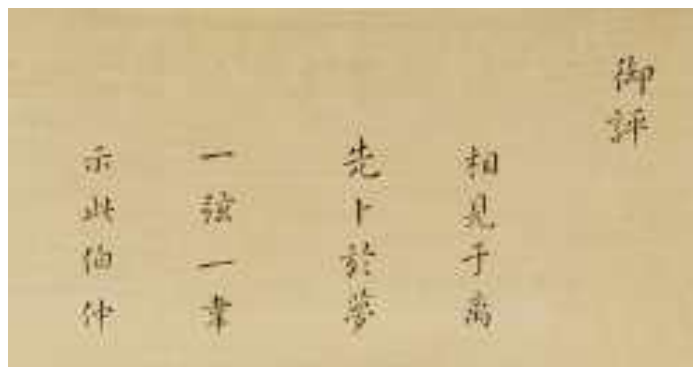 御評
相見于离
先卜於夢
一弦一韋
示此伯仲